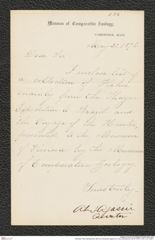 Museum of Comparative Zoology,
CAMBRIDGE, MASS.
May 31, 187
Dear Sir
I enclose list of
a collection of Fishes
mainly from the Thayer
Expedition to Brazil and
the Voyage of the Hassler
presented to the Museum
of by the Museum
of Comparative Zoology.
Yours truly,
Curator